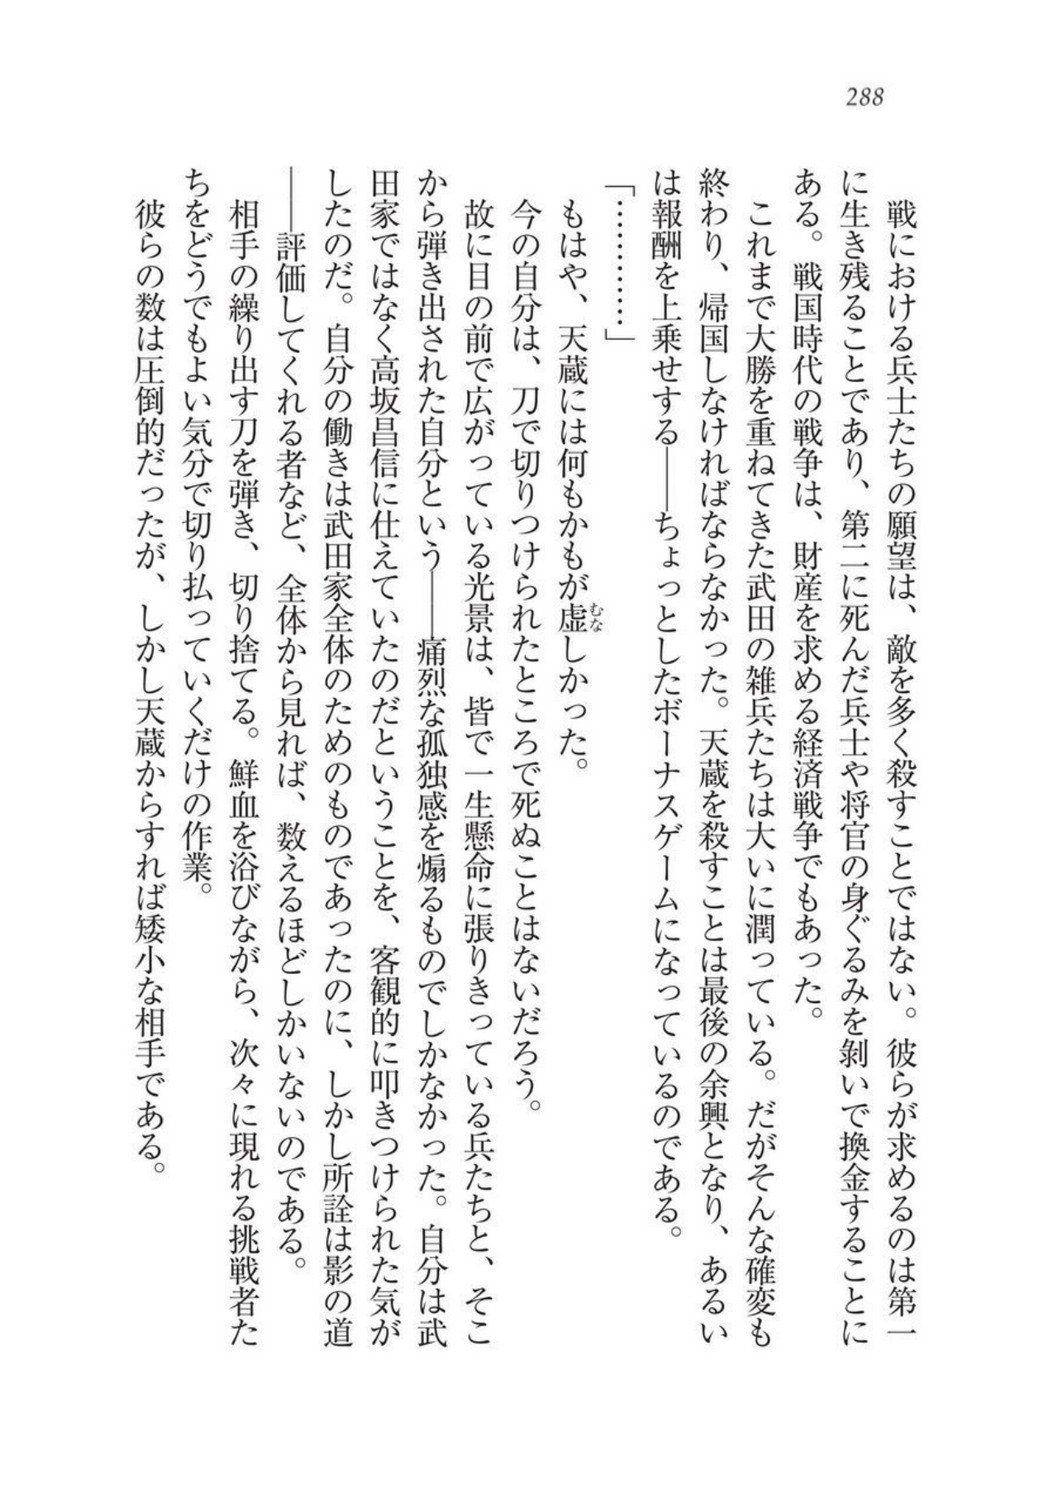 288
　戦における兵士たちの願望は、敵を多く殺すことではない。彼らが求めるのは第一
に生き残ることであり、第二に死んだ兵士や将官の身ぐるみを剝いで換金することに
ある。戦国時代の戦争は、財産を求める経済戦争でもあった。
　これまで大勝を重ねてきた武田の雑兵たちは大いに潤っている。だがそんな確変も
終わり、帰国しなければならなかった。天蔵を殺すことは最後の余興となり、あるい
は報酬を上乗せする――ちょっとしたボーナスゲームになっているのである。
「…………」
　もはや、天蔵には何もかもが虚しかった。
むな
　今の自分は、刀で切りつけられたところで死ぬことはないだろう。
　故に目の前で広がっている光景は、皆で一生懸命に張りきっている兵たちと、そこ
から弾き出された自分という――痛烈な孤独感を煽るものでしかなかった。自分は武
田家ではなく高坂昌信に仕えていたのだということを、客観的に叩きつけられた気が
したのだ。自分の働きは武田家全体のためのものであったのに、しかし所詮は影の道
――評価してくれる者など、全体から見れば、数えるほどしかいないのである。
　相手の繰り出す刀を弾き、切り捨てる。鮮血を浴びながら、次々に現れる挑戦者た
ちをどうでもよい気分で切り払っていくだけの作業。
　彼らの数は圧倒的だったが、しかし天蔵からすれば矮小な相手である。